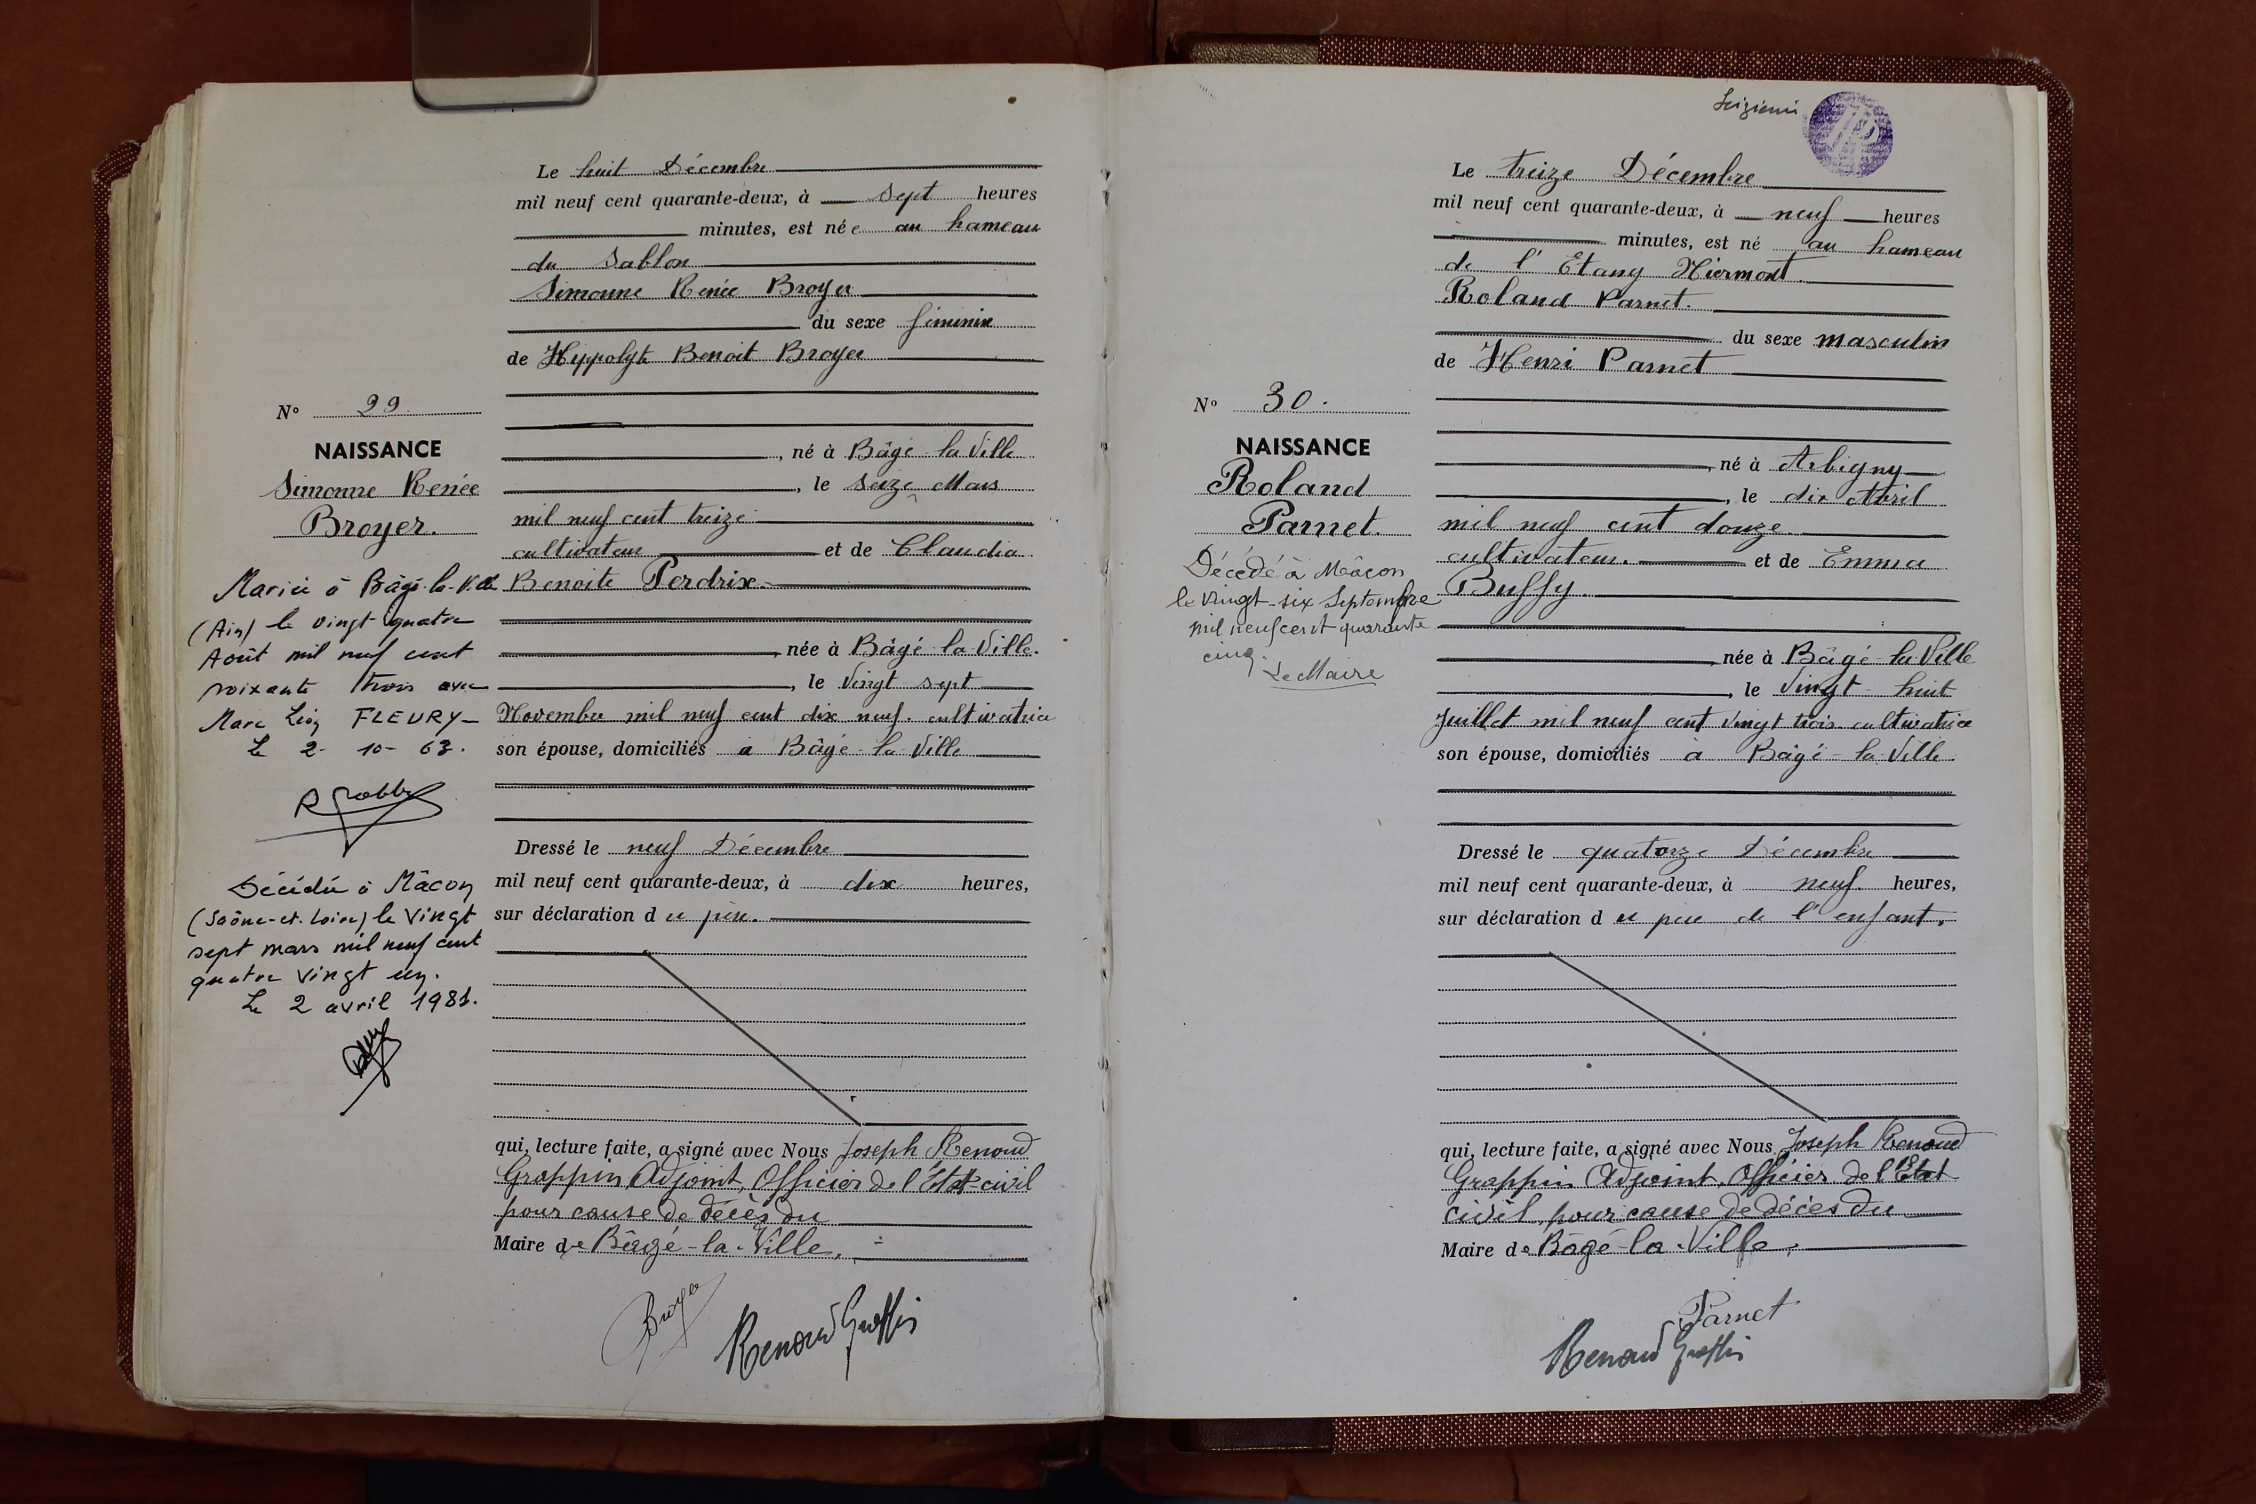 Le huit Décembre
mil neuf cent quarante-deux, à sept heures
minutes, est née au hameau
du Sablon
Simonne Renée Broyer
du sexe féminin
de Hyppolyte Benoit Broyer
né à Bâgé-la-Ville
, le seize Mars
mil neuf cent treize
cultivateur et de Claudia
Benoite Perdrix
née à Bâgé-la-Ville.
, le Vingt sept
Novembre mil neuf cent dix neuf. cultivatrice
son épouse, domiciliés à Bâgé-la-Ville
Dressé le neuf Décembre
mil neuf cent quarante-deux, à dix heures,
sur déclaration du père.
qui, lecture faite, a signé avec Nous Joseph Renoud
Grappin Adjoint, Officier de l'État-civil
pour cause de décès du
Maire de Bâgé-la-Ville.
Broyer
Renoud Grappin
N° 29.
NAISSANCE
Simonne Renée
Broyer.
Mariée à Bâgé-la-Ville
(Ain) le vingt quatre
Août mil neuf cent
soixante trois avec
Marc Léon FLEURY-
Le 2-10-63.
Décédée à Mâcon
(Saône-et-Loire) le vingt
sept mars mil neuf cent
quatre vingt un.
Le 2 avril 1981.
Le treize Décembre
mil neuf cent quarante-deux, à neuf heures
minutes, est né au hameau
de l'Etang
Roland Parnet.
du sexe masculin
de Henri Parnet
né à Arbigny
, le dix Avril
mil neuf cent douze
cultivateur. et de Emma
Buffy.
née à Bâgé-la-Ville
, le Vingt-huit
Juillet mil neuf cent vingt trois. cultivatrice
son épouse, domiciliés à Bâgé-la-Ville
Dressé le quatorze Décembre
mil neuf cent quarante-deux, à neuf. heures,
sur déclaration du père de l'enfant.
qui, lecture faite, a signé avec Nous Joseph Renoud
Grappin Adjoint, Officier de l'Etat
civil, pour cause de décès du
Maire de Bâgé-la-Ville,
Parnet
Renoud Grappin
N° 30.
NAISSANCE
Roland
Parnet.
Décédé à Mâcon
le vingt-six Septembre
mil neuf cent quarante
cinq.
Le Maire